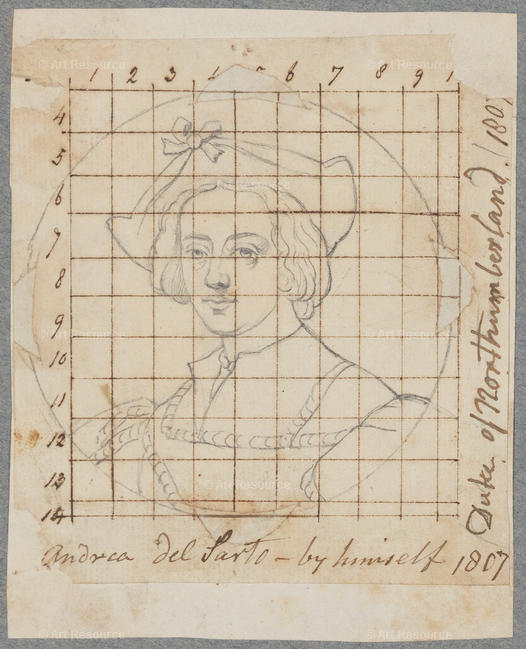 © Art Resource
1 2 3 4 5 6 7 8 9 1
4
5
6
7
8
9
10
11
12
13
14
Andrea del Sarto – by himself 1807
Duke of Northumberland. 1807